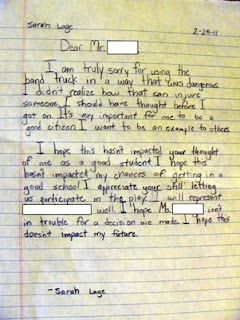 Sarah Lage
2-25-11
Dear Mr.
I am truly sorry for using the
hand truck in a way that was dangerous
I didn't realize how that can injure
someone. I should have thought before I
got on. It's very important for me to be a
good citizen I want to be an example to others
I hope this hasn't impacted your thought
of me as a good student I hope this
hasn't impacted my chances of getting in a
good school I appreciate your still letting
us participate in the play. I will represent
well. I hope Ms. isn't
in trouble for a decision we made I hope this
doesn't impact my future.
- Sarah Lage